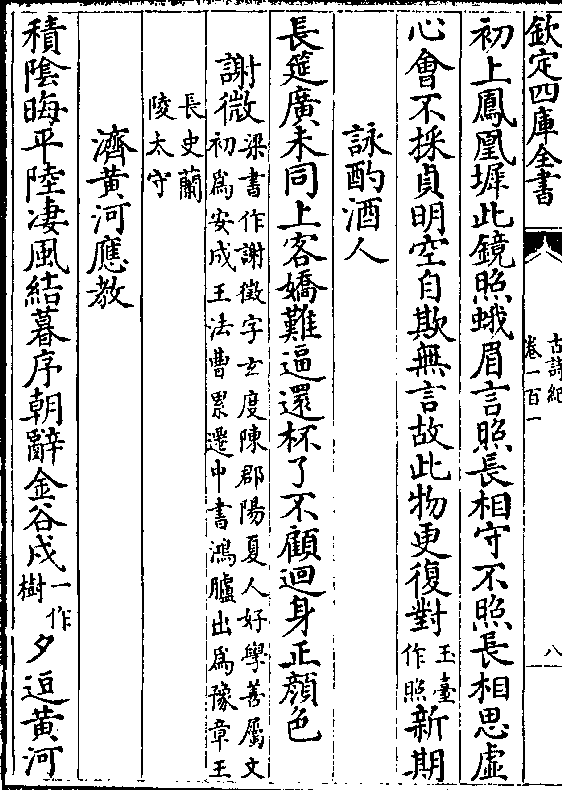 欽定四庫全書
古詩紀
卷一百一
八
初上鳳凰墀此鏡照蛾眉言照長相守不照長相思虛
心會不採貞明空自欺無言故此物更復對玉臺作照新期
詠酌酒人
長筵廣未同上客嬌難逼還杯了不顧迴身正顔色
謝微梁書作謝徵字玄度陳郡陽夏人好學善屬文初爲安成王法曹累遷中書鴻臚出爲豫章王
長史蘭陵太守
濟黄河應教
積陰晦平陸凄風結暮序朝辭金谷戍一作樹夕逗黄河